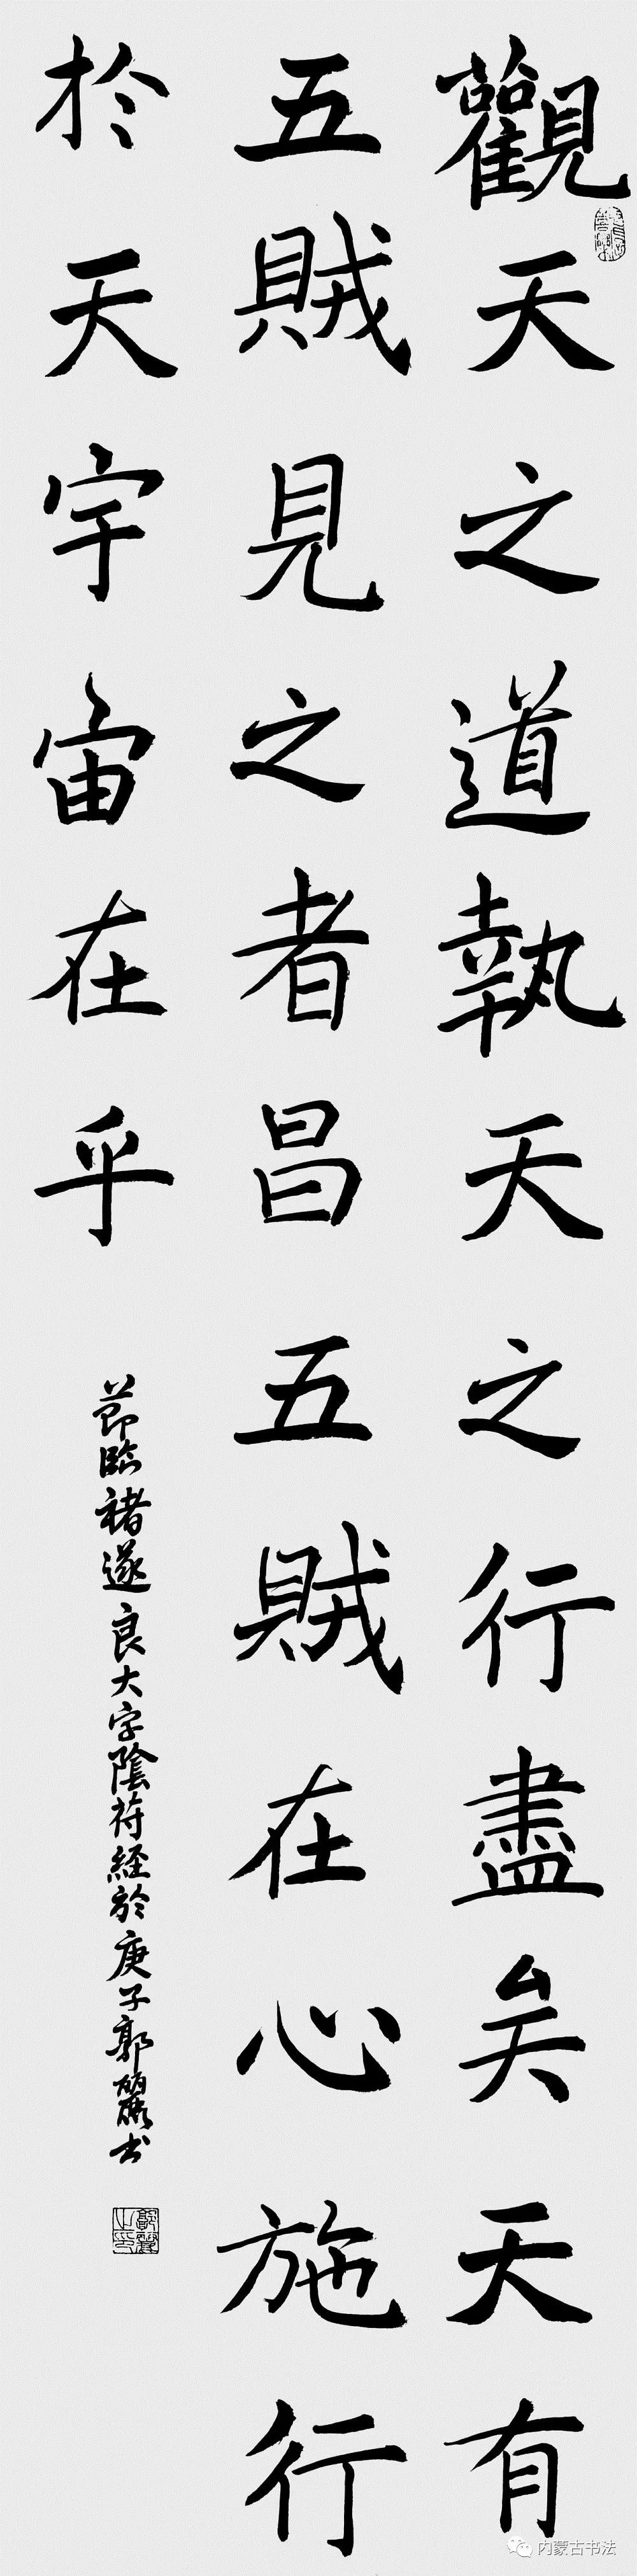 觀天之道執天之行盡矣天有
五賊見之者昌五賊在心施行
於天宇宙在乎
節臨褚遂良大字陰符経於庚子郭麗书
内蒙古书法